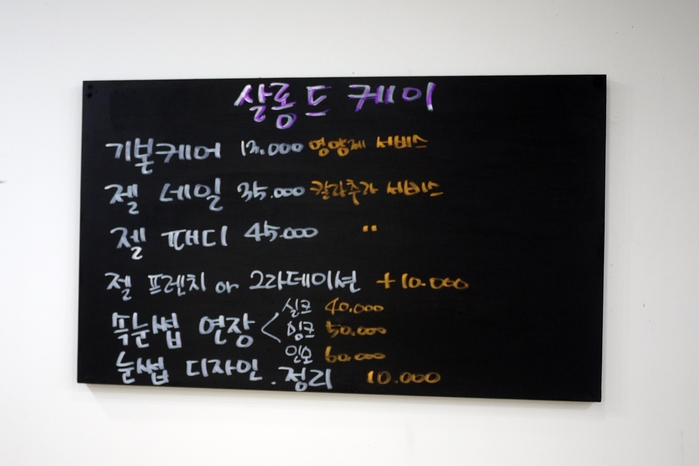 살롱드 케이
기본케어 13.000 영양제 서비스
젤 네일 35.000 칼라추가 서비스
젤 패디 45.000 "
젤 프렌치 or 그라데이션 +10.000
속눈썹 연장 < 실크 40.000
밍크 50.000
인모 60.000
눈썹 디자인.정리 10.000